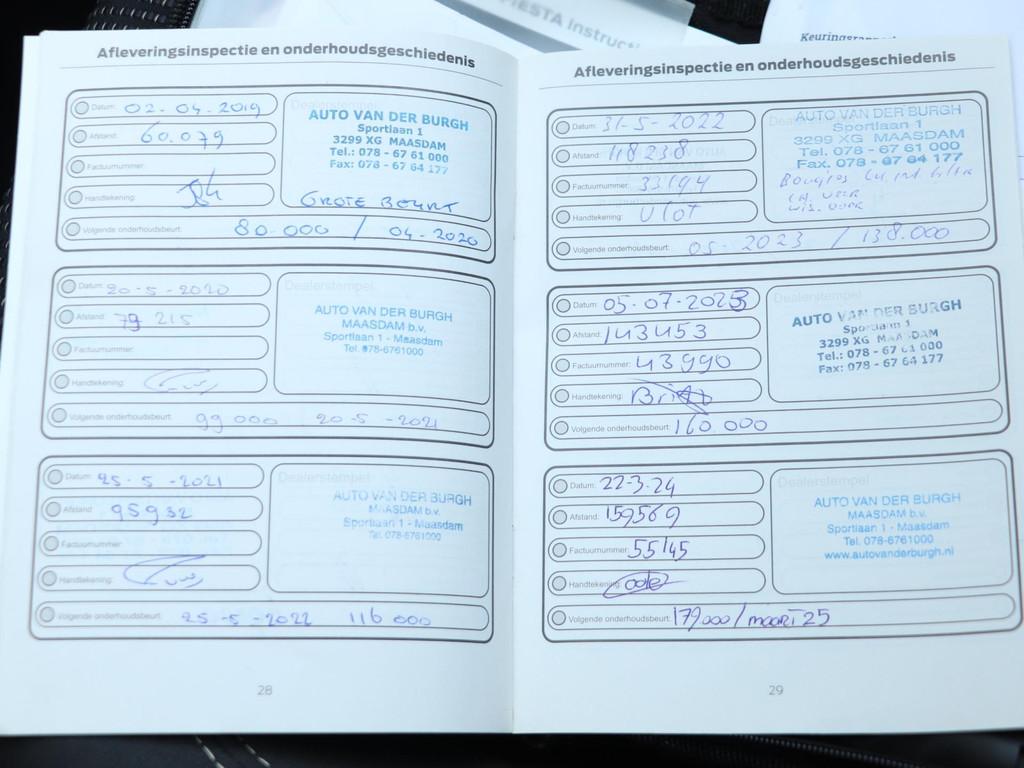 FIESTA Instructi
Afleveringsinspectie en onderhoudsgeschiedenis
Datum: 02-04-2019
Afstand: 60.079
Factuurnummer:
Handtekening:
Volgende onderhoudsbeurt: 80.000 / 04-2020
Dealerstempel
AUTO VAN DER BURGH
Sportlaan 1
3299 XG MAASDAM
Tel.: 078 - 67 61 000
Fax: 078 - 67 64 177
GROTE BEURT
Datum: 20-5-2020
Afstand: 79 215
Factuurnummer:
Handtekening:
Volgende onderhoudsbeurt: 99 000 20-5-2021
Dealerstempel
AUTO VAN DER BURGH
MAASDAM b.v.
Sportlaan 1 - Maasdam
Tel. 078-6761000
Datum: 25-5-2021
Afstand: 95932
Factuurnummer:
Handtekening:
Volgende onderhoudsbeurt: 25-5-2022 116 000
Dealerstempel
AUTO VAN DER BURGH
MAASDAM b.v.
Sportlaan 1 - Maasdam
Tel. 078-6761000
28
Afleveringsinspectie en onderhoudsgeschiedenis
Datum: 31-5-2022
Afstand: 118238
Factuurnummer: 33194
Handtekening: Vlot
Volgende onderhoudsbeurt: 05-2023 / 138.000
AUTO VAN DER BURGH
Sportlaan 1
3299 XG MAASDAM
Tel. 078 - 67 61 000
Fax. 078 - 67 64 177
Bougies
Datum: 05-07-2023
Afstand: 143453
Factuurnummer: 43990
Handtekening:
Volgende onderhoudsbeurt: 160.000
Dealerstempel
AUTO VAN DER BURGH
Sportlaan 1
3299 XG MAASDAM
Tel.: 078 - 67 61 000
Fax: 078 - 67 64 177
Datum: 22-3-24
Afstand: 159569
Factuurnummer: 55145
Handtekening:
Volgende onderhoudsbeurt: 179000/maart 25
Dealerstempel
AUTO VAN DER BURGH
MAASDAM b.v.
Sportlaan 1 - Maasdam
Tel. 078-6761000
www.autovanderburgh.nl
29